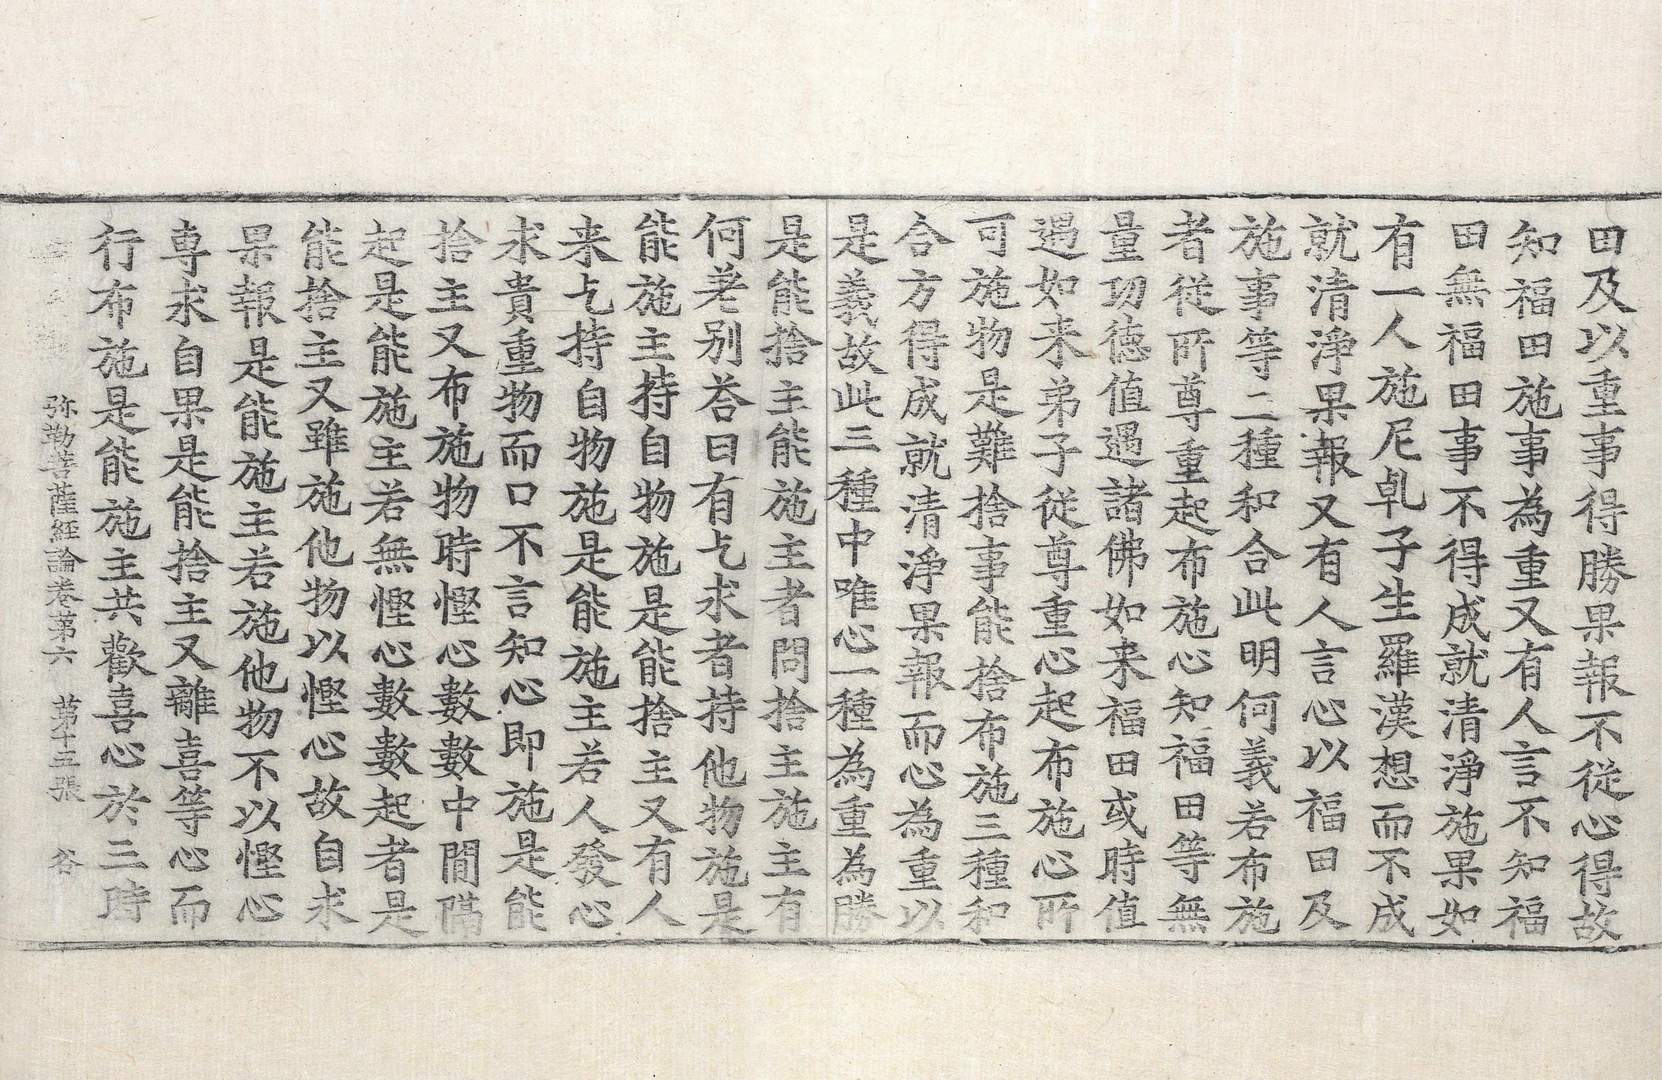 田及以重事得勝果報不從心得故
知福田施事為重又有人言不知福
田無福田事不得成就清淨施果如
有一人施尼乹子生羅漢想而不成
就清淨果報又有人言心以福田及
施事等二種和合此明何義若布施
者從所尊重起布施心知福田等無
量功德值遇諸佛如来福田或時值
遇如来弟子從尊重心起布施心所
可施物是難捨事能捨布施三種和
合方得成就清淨果報而心為重以
是義故此三種中唯心一種為重為勝
是能捨主能施主者問捨主施主有
何差别荅曰有乞求者持他物施是
能施主持自物施是能捨主又有人
来乞持自物施是能施主若人發心
求貴重物而口不言知心即施是能
捨主又布施物時慳心數數中間隔
起是能施主若無慳心數數起者是
能捨主又雖施他物以慳心故自求
果報是能施主若施他物不以慳心
専求自果是能捨主又離喜等心而
行布施是能施主共歡喜心於三時
弥勒菩薩経論卷第六 第十五張 谷